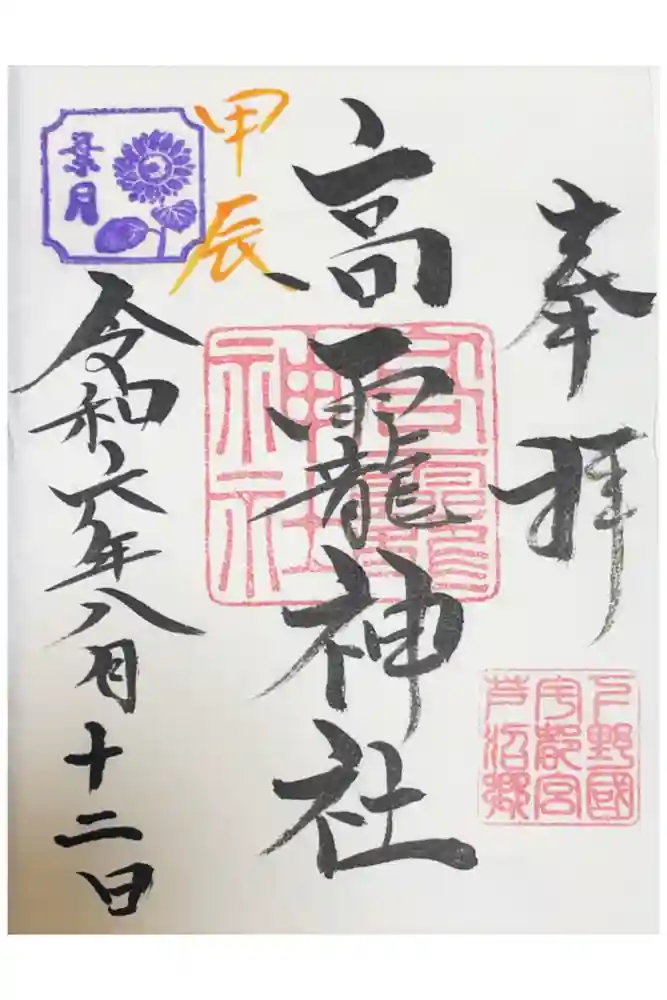 奉拝
下野國
宇都宮
芦沼郷
高靇神社
高靇神社
甲辰
葉月
令和六年八月十二日